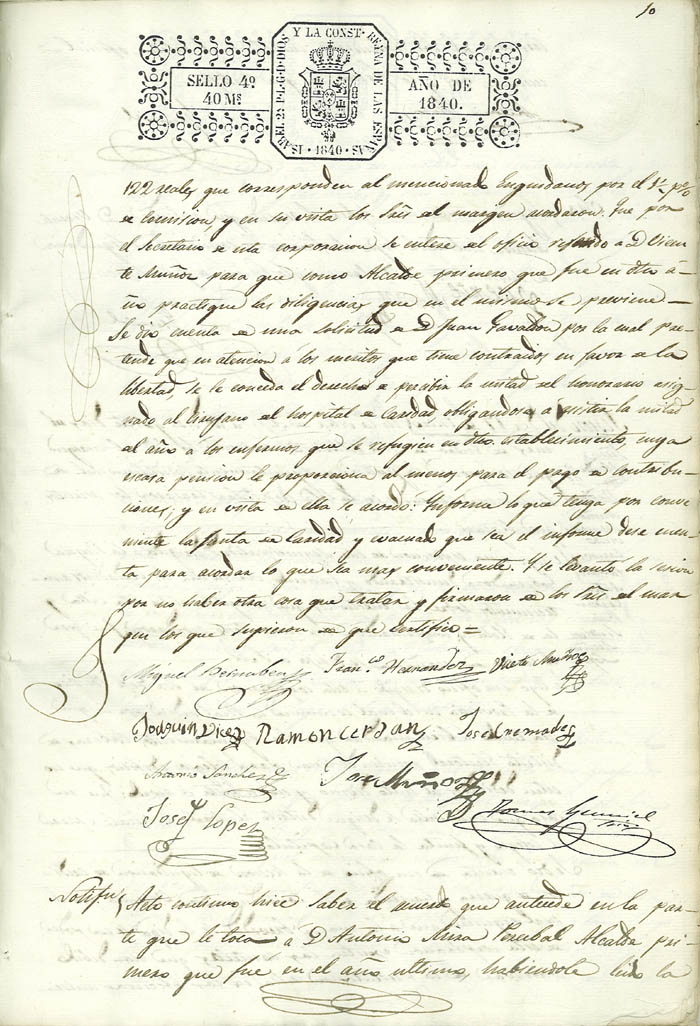 10
SELLO 4º
40 Ms
ISABEL 2ª P.L.G.D.DIOS Y LA CONST. REINA DE LAS ESPAÑAS
1840
AÑO DE
1840.
122 reales que corresponden al mencionado por el
de comision, y en su vista los Sres del margen acordaron: Que por
el Secretario de esta corporacion se entere el oficio referido a D. Vicen-
te Muñoz para que como Alcalde primero que fue en dho á-
ño practique las diligencias que en el mismo se previene—
Se dio cuenta de una solicitud de D. Juan Gavaldon por la cual pre-
tende que en atencion á los meritos que tiene contraidos en favor de la
libertad, se le conceda el derecho de percibir la mitad del honorario asig-
nado al cirujano del hospital de caridad, obligandose a asistir la mitad
del año a los enfermos que se refugien en dho. establecimiento, cuya
escasa pension le proporciona al menos para el pago de contribu-
ciones; y en vista de ella se acordo: Informe lo que tenga por conve-
niente la Junta de Caridad y evacuado que sea el informe dese cuen-
ta para acordar lo que sea mas conveniente. Y se levantó la sesion
por no haber otra cosa que tratar y firmaron de los Sres. del mar
gen los que supieron de que certifico=
Miguel Bernabeu Franco Hernandez Vicete Muñoz
Joaquin Ramon Cerdan Jose Cremades
Antonio Sanchez Jose Muñoz
Josef Lopez Tomas
Notifn Acto continuo hice saber el acuerdo que antecede en la par-
te que le toca á D Antonio Mira Percebal Alcalde pri-
mero que fué en el año ultimo, habiendole leido la